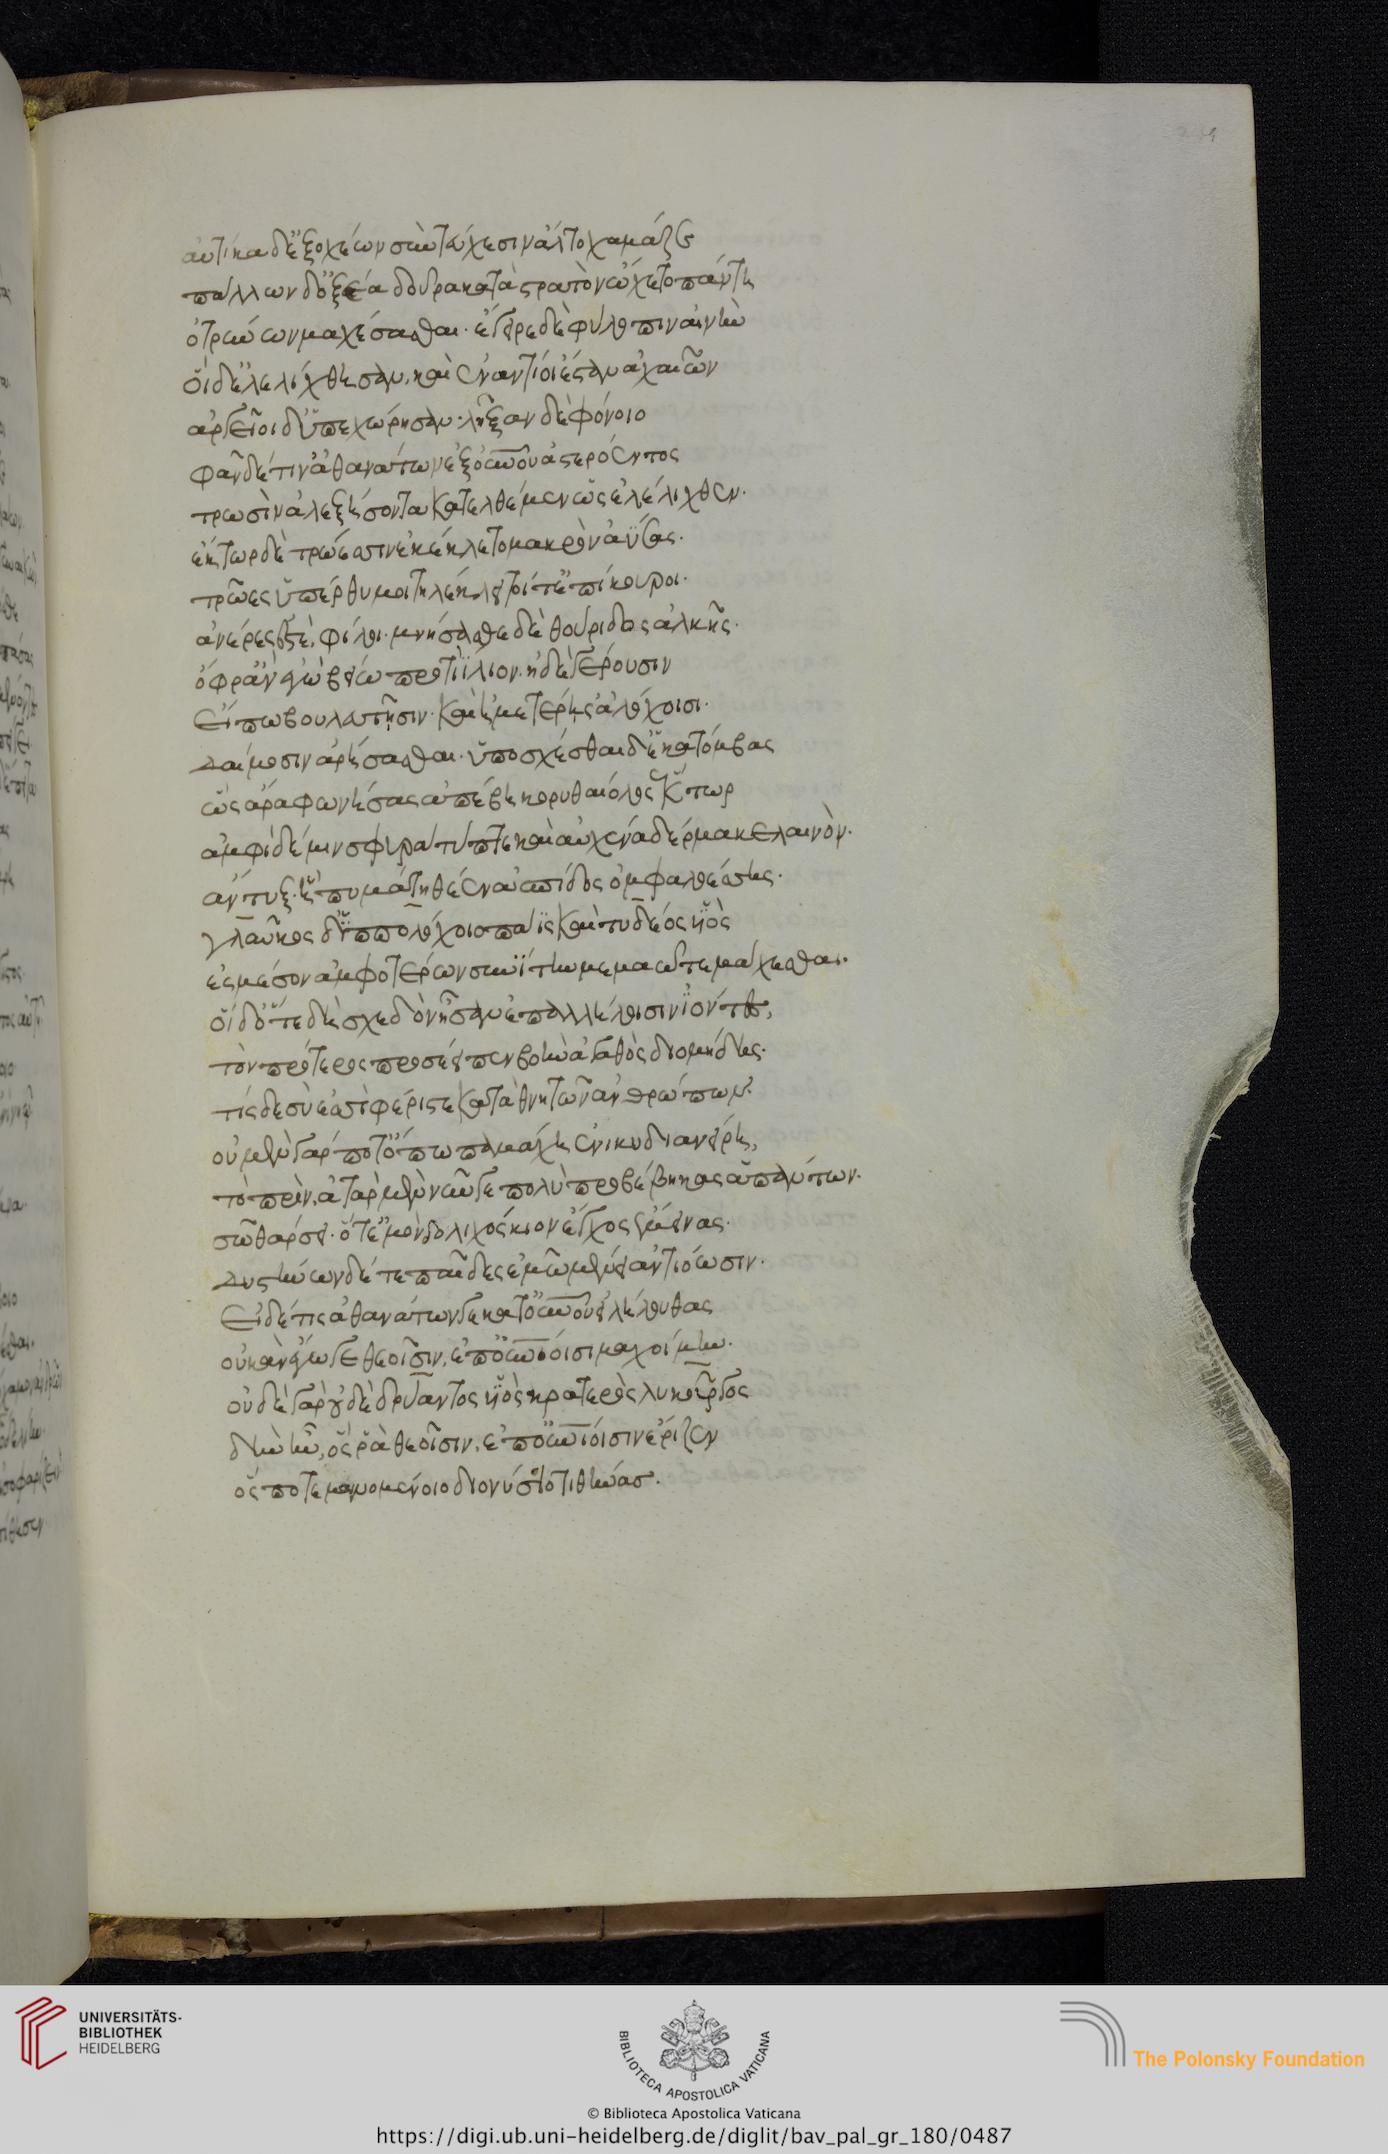 αὐτίκα δ' ἐξ ὀχέων σὺν τεύχεσιν ἆλτο χαμᾶζε
πάλλων δ' ὀξέα δοῦρα κατὰ στρατὸν ᾤχετο πάντη
ὀτρύνων μαχέσασθαι· ἔγειρε δὲ φύλοπιν αἰνὴν
οἱ δ' ἐλελίχθησαν, καὶ ἐναντίοι ἔσταν ἀχαιῶν
ἀργεῖοι δ' ὑπεχώρησαν· λῆξαν δὲ φόνοιο
φὰν δέ τιν' ἀθανάτων ἐξ οὐρανοῦ ἀστερόεντος
τρωσὶν ἀλεξήσοντα κατελθέμεν ὣς ἐλέλιχθεν·
ἕκτωρ δὲ τρώεσσιν ἐκέκλετο μακρὸν ἀΰσας·
τρῶες ὑπέρθυμοι τηλέκλητοί τ' ἐπίκουροι·
ἀνέρες ἐστὲ φίλοι· μνήσασθε δὲ θούριδος ἀλκῆς·
ὄφρ' ἂν ἐγὼ βείω προτὶ ἴλιον. ἠδὲ γέρουσιν
εἴπω βουλευτῇσιν· καὶ ἡμετέρῃς ἀλόχοισι·
δαίμοσιν ἀρήσασθαι· ὑποσχέσθαι δ' ἑκατόμβας
ὣς ἄρα φωνήσας ἀπέβη κορυθαίολος ἕκτωρ
ἀμφὶ δέ μιν σφυρὰ τύπτε καὶ αὐχένα δέρμα κελαινὸν·
ἄντυξ. ἣ πυμάτη θέεν ἀσπίδος ὀμφαλοέσσης·
γλαῦκος δ' ἱππολόχοιο παῖς καὶ τυδέος υἱὸς
ἐς μέσον ἀμφοτέρων συνίτην μεμαῶτε μάχεσθαι·
οἱ δ' ὅτε δὴ σχεδὸν ἦσαν ἐπ' ἀλλήλοισιν ἰόντες,
τὸν πρότερος προσέειπεν βοὴν ἀγαθὸς διομήδης·
τίς δὲ σύ ἐσσι φέριστε καταθνητῶν ἀνθρώπων·
οὐ μὲν γάρ ποτ' ὄπωπα μάχῃ ἔνι κυδιανείρῃ,
τὸ πρὶν. ἀτὰρ μὲν νῦν γε πολὺ προβέβηκας ἁπάντων·
σῷ θάρσει· ὅτ' ἐμὸν δολιχόσκιον ἔγχος ἔμεινας·
δυστήνων δέ τε παῖδες ἐμῷ μένει ἀντιόωσιν·
εἰ δέ τις ἀθανάτων γε κατ' οὐρανοῦ εἰλήλουθας
οὐκ ἂν ἔγωγε θεοῖσιν, ἐπουρανίοισι μαχοίμην·
οὐδὲ γὰρ οὐδὲ δρύαντος υἱὸς κρατερὸς λυκοῦργος
δὴν ἦν, ὅς ῥα θεοῖσιν, ἐπουρανίοισιν ἔριζεν
ὅς ποτε μαινομένοιο διονύσοιο τιθήνας·
UNIVERSITÄTS-
BIBLIOTHEK
HEIDELBERG
BIBLIOTECA APOSTOLICA VATICANA
The Polonsky Foundation
© Biblioteca Apostolica Vaticana
https://digi.ub.uni-heidelberg.de/diglit/bav_pal_gr_180/0487